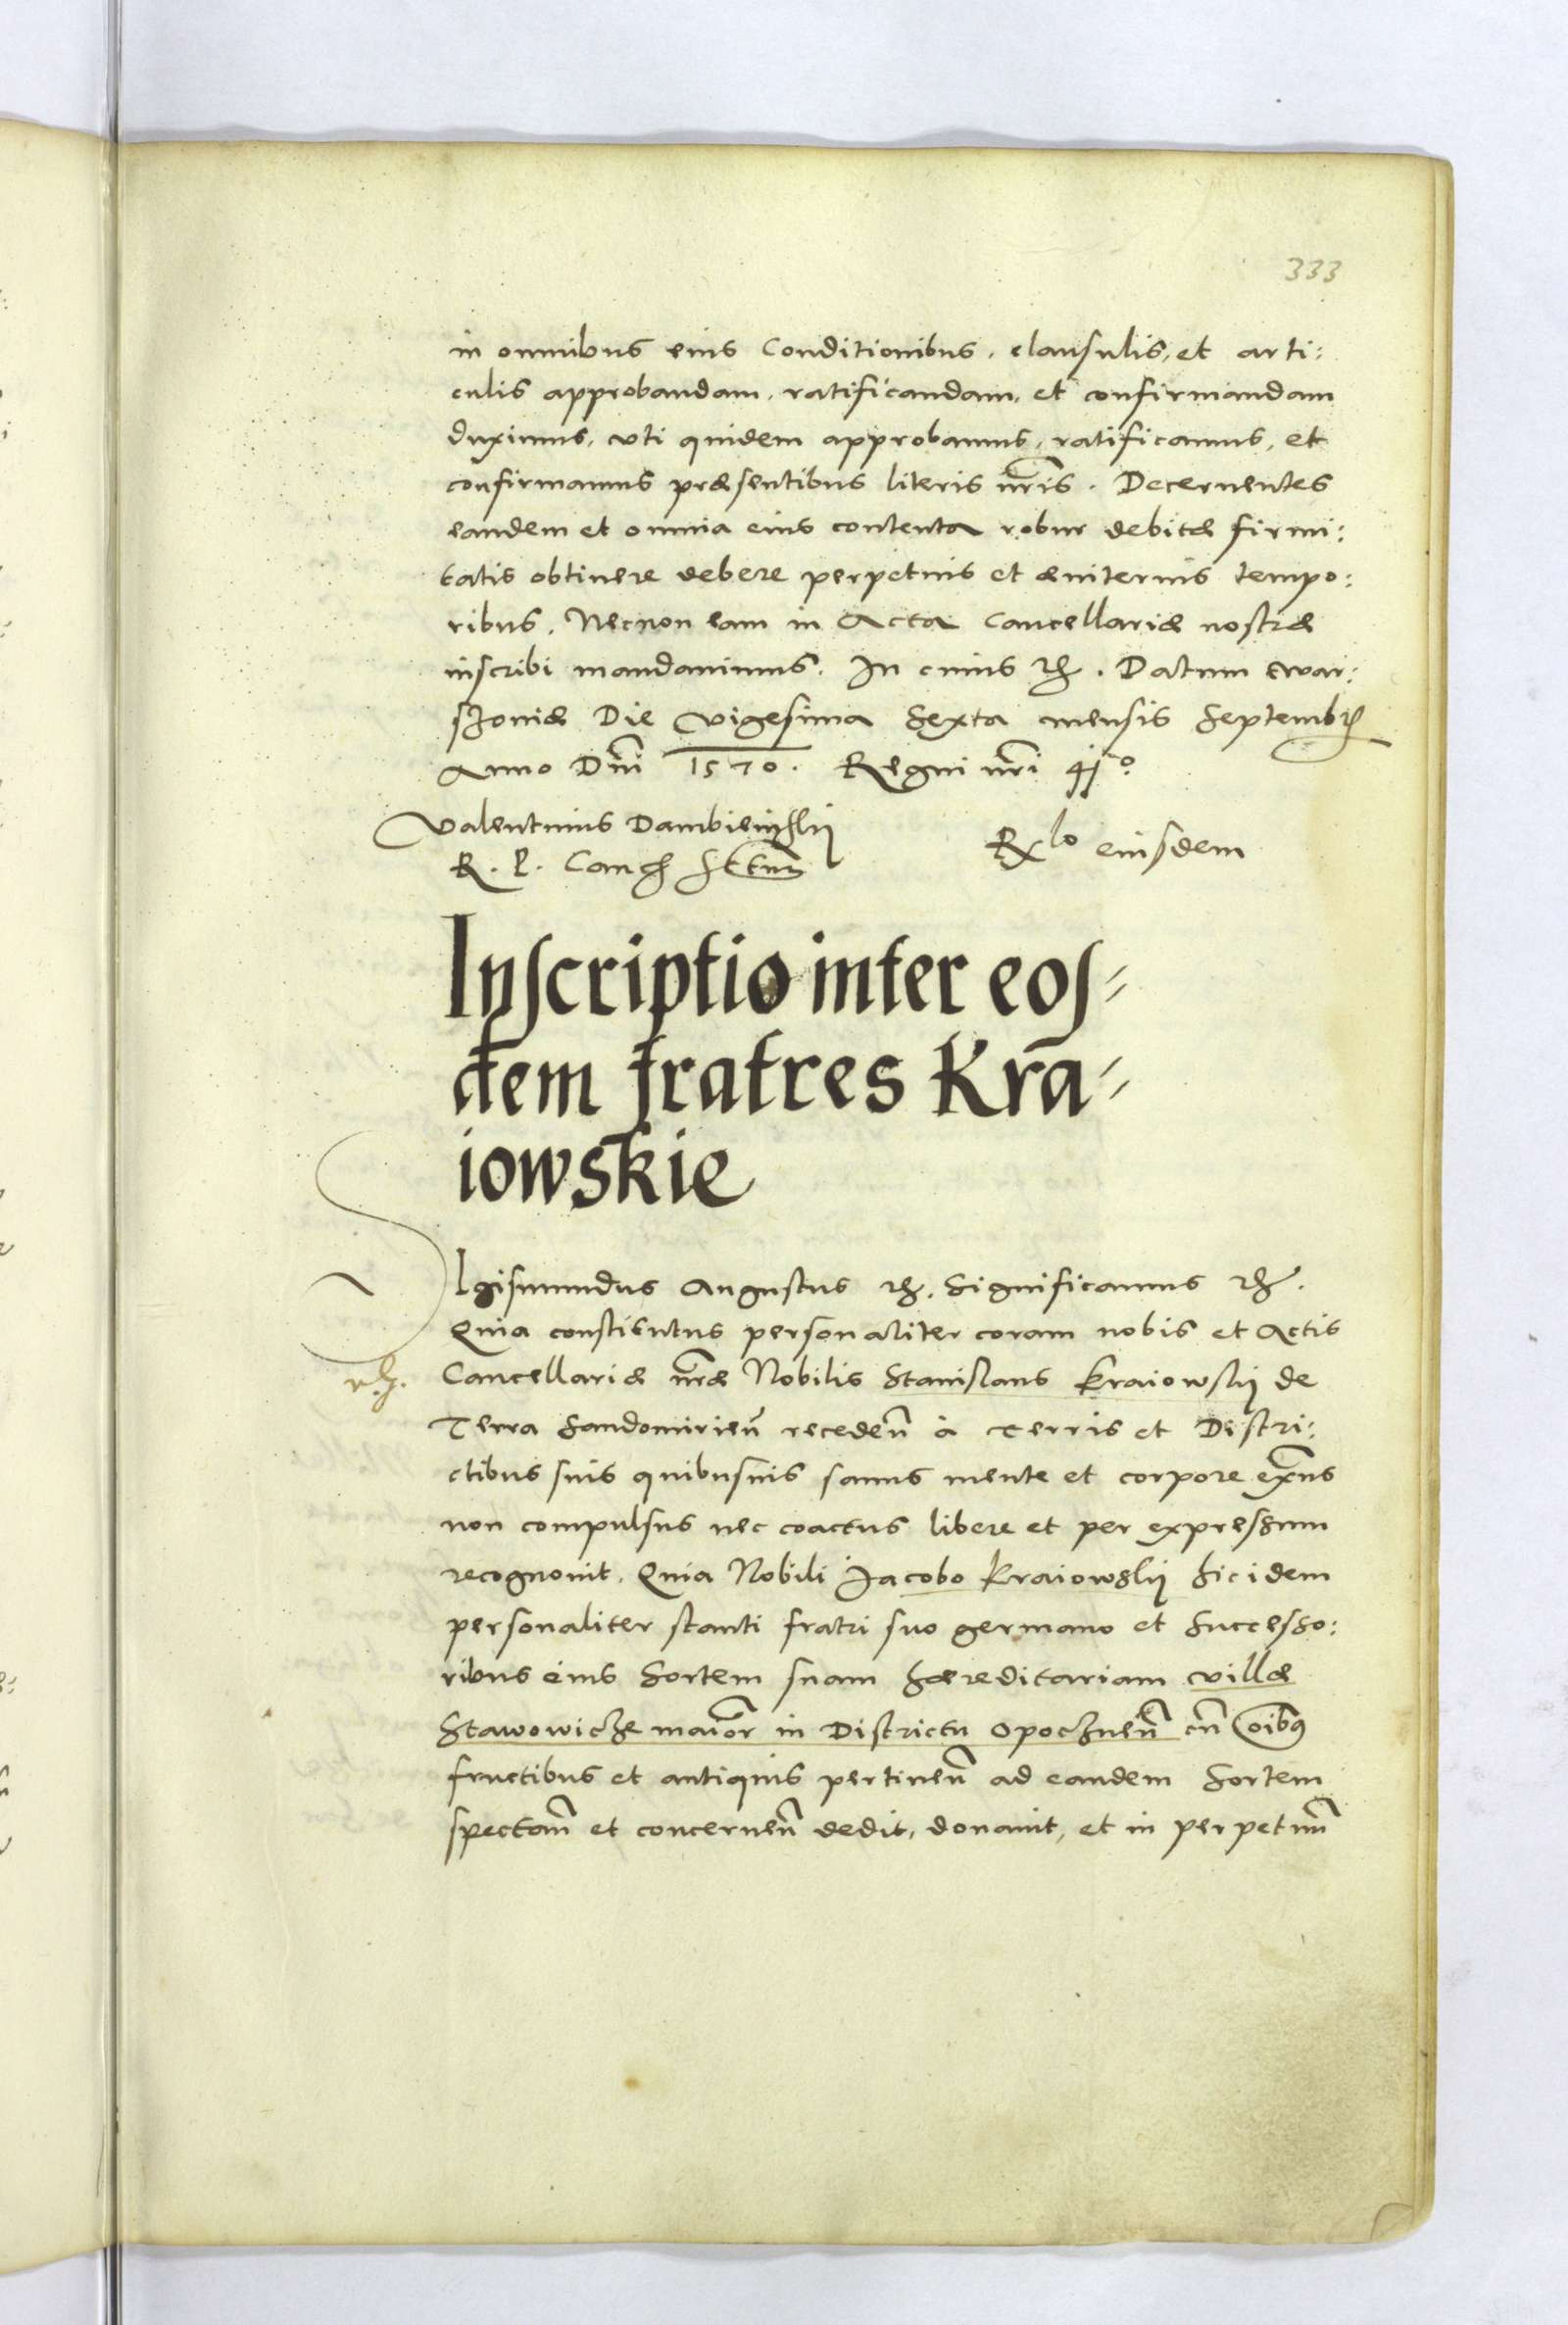 333
in omnibus eius Conditionibus, clausulis, et arti:
culis approbandam, ratificandam, et confirmandam
duximus, vti quidem approbamus, ratificamus, et
confirmamus præsentibus literis nr̃is. Decernentes
eandem et omnia eius contenta robur debitæ firmi:
tatis obtinere debere perpetuis et æuiternis tempo:
ribus. Necnon eam in Acta Cancellariæ nostræ
inscribi mandauimus. In cuius rei. Datum War:
szouiæ Die Vigesima Sexta mensis Septembr
Anno Dñi 1570. Regni nr̃i 41º.
Valentinus Dambienskij
R. P. Canc sst
Rlo eiusdem
Inscriptio inter eos=
dem fratres Kra=
iowskie
SIgismundus Augustus etc. Significamus etc.
Quia constitutus personaliter coram nobis et Actis
Cancellariæ nr̃æ Nobilis Stanislaus Kraiowskij de
Terra Sandomirieñ recedeñ à Terris et Distri:
ctibus suis quibusuis sanus mente et corpore exñs
non compulsus nec coactus libere et per expressum
recognouit. Quia Nobili Jacobo Kraiowskij hic idem
personaliter stanti fratri suo germano et Successo:
ribus eius Sortem suam hæreditariam villæ
Stawowicze maior in Districtu Opoczneñ cũ oibus
fructibus et antiquis pertineñ ad eandem Sortem
spectañ et concerneñ dedit, donauit, et in perpetuũ